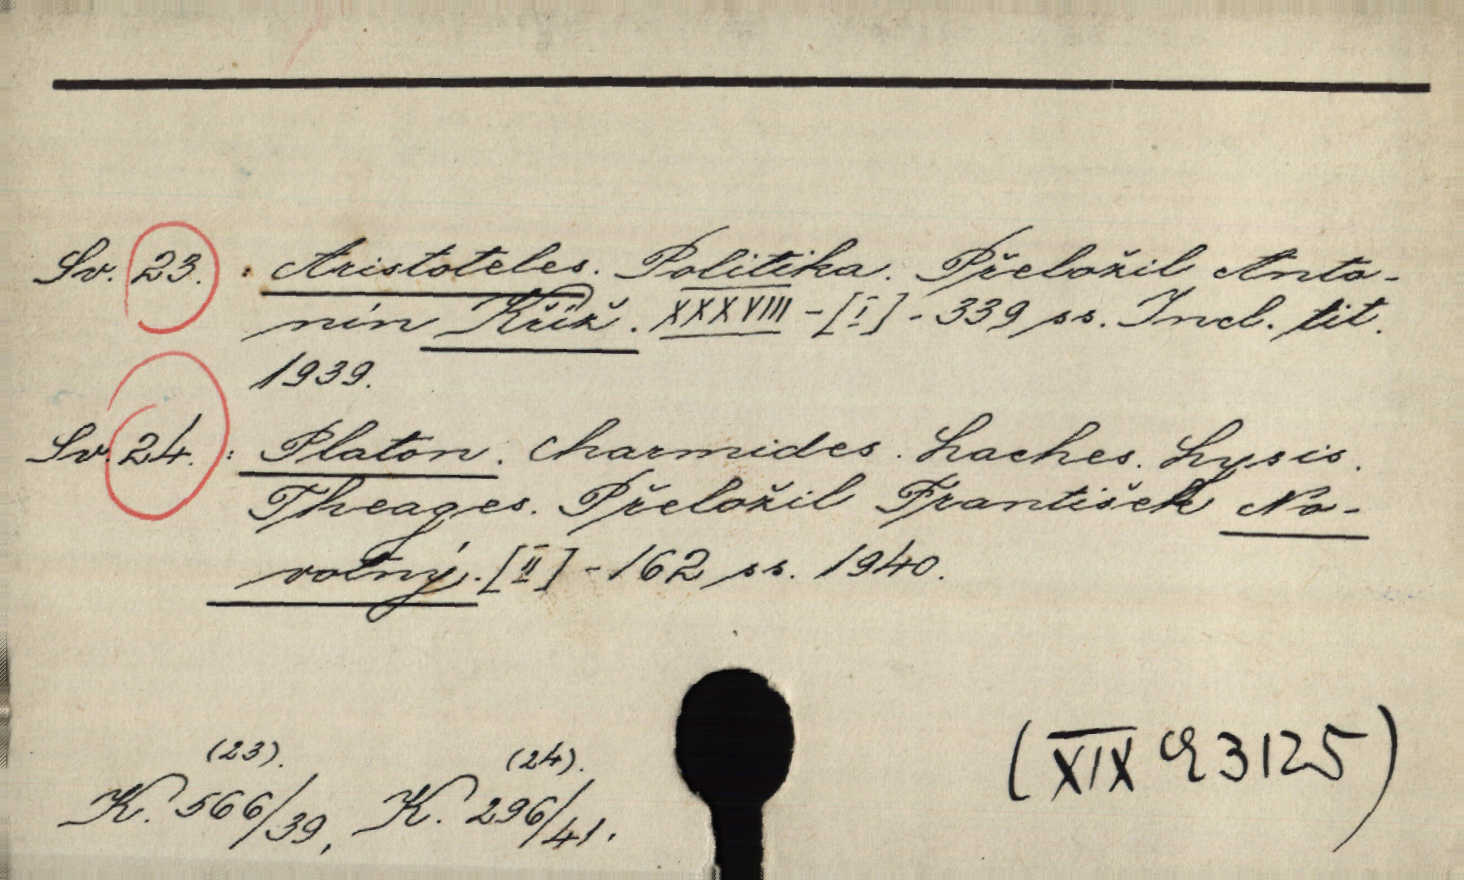 Sv. 23. : Aristoteles. Politika. Přeložil Anto-
nín Kříž. XXXVIII - [I] - 339 ss. Incl. tit.
1939.
Sv. 24. : Platon. Charmides. Laches. Lysis.
Theages. Přeložil František No-
votný. [II] - 162 ss. 1940.
(23). (24).
K. 566/39, K. 296/41.
(XIX 3125)